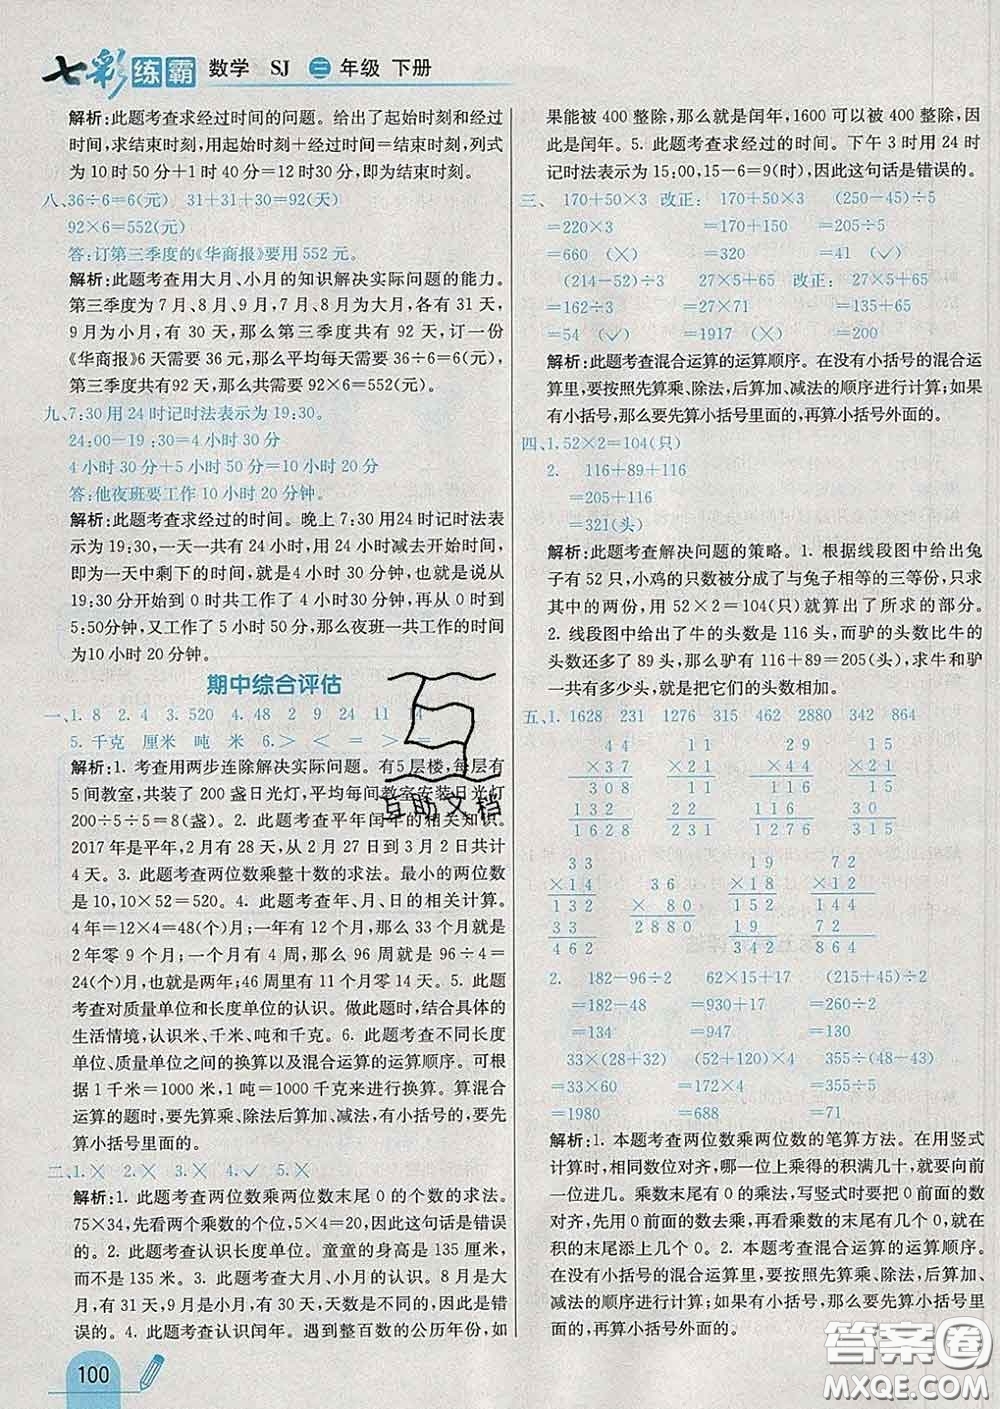 七彩练霸 数学 SJ 三年级 下册
解析:此题考查求经过时间的问题。给出了起始时刻和经过
时间,求结束时刻,用起始时刻+经过时间=结束时刻,列式
为 10 时 50 分+1 时 40 分=12 时 30 分,即为结束时刻。
八、36÷6=6(元) 31+31+30=92(天)
92×6=552(元)
答:订第三季度的《华商报》要用 552 元。
解析:此题考查用大月、小月的知识解决实际问题的能力。
第三季度为 7 月、8 月、9 月,7 月、8 月是大月,各有 31 天,
9 月为小月,有 30 天,那么第三季度共有 92 天,订一份
《华商报》6 天需要 36 元,那么平均每天需要 36÷6=6(元),
第三季度共有92 天,需要 92×6=552(元)。
九、7:30 用 24 时记时法表示为 19:30。
24:00-19 :30=4 小时 30 分
4 小时 30 分+5 小时 50 分=10 小时 20 分
答:他夜班要工作 10 小时 20 分钟。
解析:此题考查求经过的时间。晚上 7:30 用24 时记时法表
示为 19:30,一天一共有 24 小时,用 24 时减去开始时间,
即为一天中剩下的时间,就是4 小时 30 分钟,所以说从
19:30开始到 0 时共工作了 4 小时 30 分钟,再从 0 时到
5:50分钟,又工作了 5 小时 50 分,那么夜班一共工作的时间
为10 小时 20 分钟。
期中综合评估
一、1. 8 2. 4 3. 520 4. 48 2 9 24 11 4
5. 千克 厘米 吨 米 6.> < = > =
解析:1. 考查用两步连除解决实际问题。有5 层楼,每层有
5 间教室,共装了 200 盏日光灯,平均每间教室安装日光灯
200÷5÷5=8(盏)。2. 此题考查平年闰年的相关知识。
2017 年是平年,2 月有 28 天,从 2 月 27 日到 3 月 2 日共计
4 天。3. 此题考查两位数乘整十数的求法。最小的两位数
是 10,10×52=520。4. 此题考查年、月、日的相关计算。
4 年=12×4=48(个)月;一年有 12 个月,那么 33 个月就
是 2 年 9 个月;一个月有 4 周,那么 96 周就是 96÷4=
24(个)月,也就是两年;一周有 7 天,那么 81 天就有
81÷7=11(个)周零 4 天,两个月零 14 天。5. 此题
考查对质量单位和长度单位的认识。做此题时,结合具体的
生活情境,认识米、千米、吨和千克。6. 此题考查不同长度
单位、质量单位之间的换算以及混合运算的运算顺序。可根
据 1 千米=1000 米,1 吨=1000 千克来进行换算。算混合
运算的题时,要先算乘、除法后算加、减法,有小括号的,要先
算小括号里面的。
二、1.× 2.× 3.× 4.✓ 5.×
解析:1. 此题考查两位数乘两位数末尾 0 的个数的求法。
75×34,先看两个乘数的个位,5×4=20,因此这句话是错误
的。2. 此题考查认识长度单位。童童的身高是 135 厘米,
而不是 135 米。3. 此题考查大月、小月的认识。8 月是大
月,有 31 天,9 月是小月,有 30 天,天数是不同的,因此是错
误的。4. 此题考查认识闰年。遇到整百数的公历年份,如
果能被 400 整除,那么就是闰年,1600 可以被 400 整除,因
此是闰年。5. 此题考查求经过的时间。下午 3 时用 24 时
记时法表示为 15:00,15-6=9(时),因此这句话是错误的。
三、 170+50×3 改正: 170+50×3 (250-45)÷5
=220×3 =170+150 =205÷5
=660 (×) =320 =41 (✓)
(214-52)÷3 27×5+65 改正: 27×5+65
=162÷3 =27×71 =135+65
=54 (✓) =1917 (×) =200
解析:此题考查混合运算的运算顺序。在没有小括号的混合运
算里,要按照先算乘、除法,后算加、减法的顺序进行计算;如果
有小括号,那么要先算小括号里面的,再算小括号外面的。
四、1. 52×2=104(只)
2. 116+89+116
=205+116
=321(头)
解析:此题考查解决问题的策略。1. 根据线段图中给出兔
子有 52 只,小鸡的只数被分成了与兔子相等的三等份,只求
其中的两份,用 52×2=104(只)就算出了所求的部分。
2. 线段图中给出了牛的头数是 116 头,而驴的头数比牛的
头数还多了 89 头,那么驴有 116+89=205(头),求牛和驴
一共有多少头,就是把它们的头数相加。
五、1. 1628 231 1276 315 462 2880 342 864
44 11 29 15
×37 ×21 ×44 ×21
308 11 116 15
132 22 116 30
1628 231 1276 315
33 19 72
×14 36 ×18 ×12
132 × 80 152 144
33 2880 19 72
462 342 864
2. 182-96÷2 62×15+17 (215+45)÷2
=182-48 =930+17 =260÷2
=134 =947 =130
33×(28+32) (52+120)×4 355÷(48-43)
=33×60 =172×4 =355÷5
=1980 =688 =71
解析:1. 本题考查两位数乘两位数的笔算方法。在用竖式
计算时,相同数位对齐,哪一位上乘得的积满几十,就要向前
一位进几。乘数末尾有 0 的乘法,写竖式时要把 0 前面的数
对齐,先用 0 前面的数去乘,再看乘数的末尾有几个 0,就在
积的末尾添上几个 0。2. 本题考查混合运算的运算顺序。
在没有小括号的混合运算里,要按照先算乘、除法,后算加、
减法的顺序进行计算;如果有小括号,那么要先算小括号里
面的,再算小括号外面的。
互助文档
100
答案圈
MXQE.COM